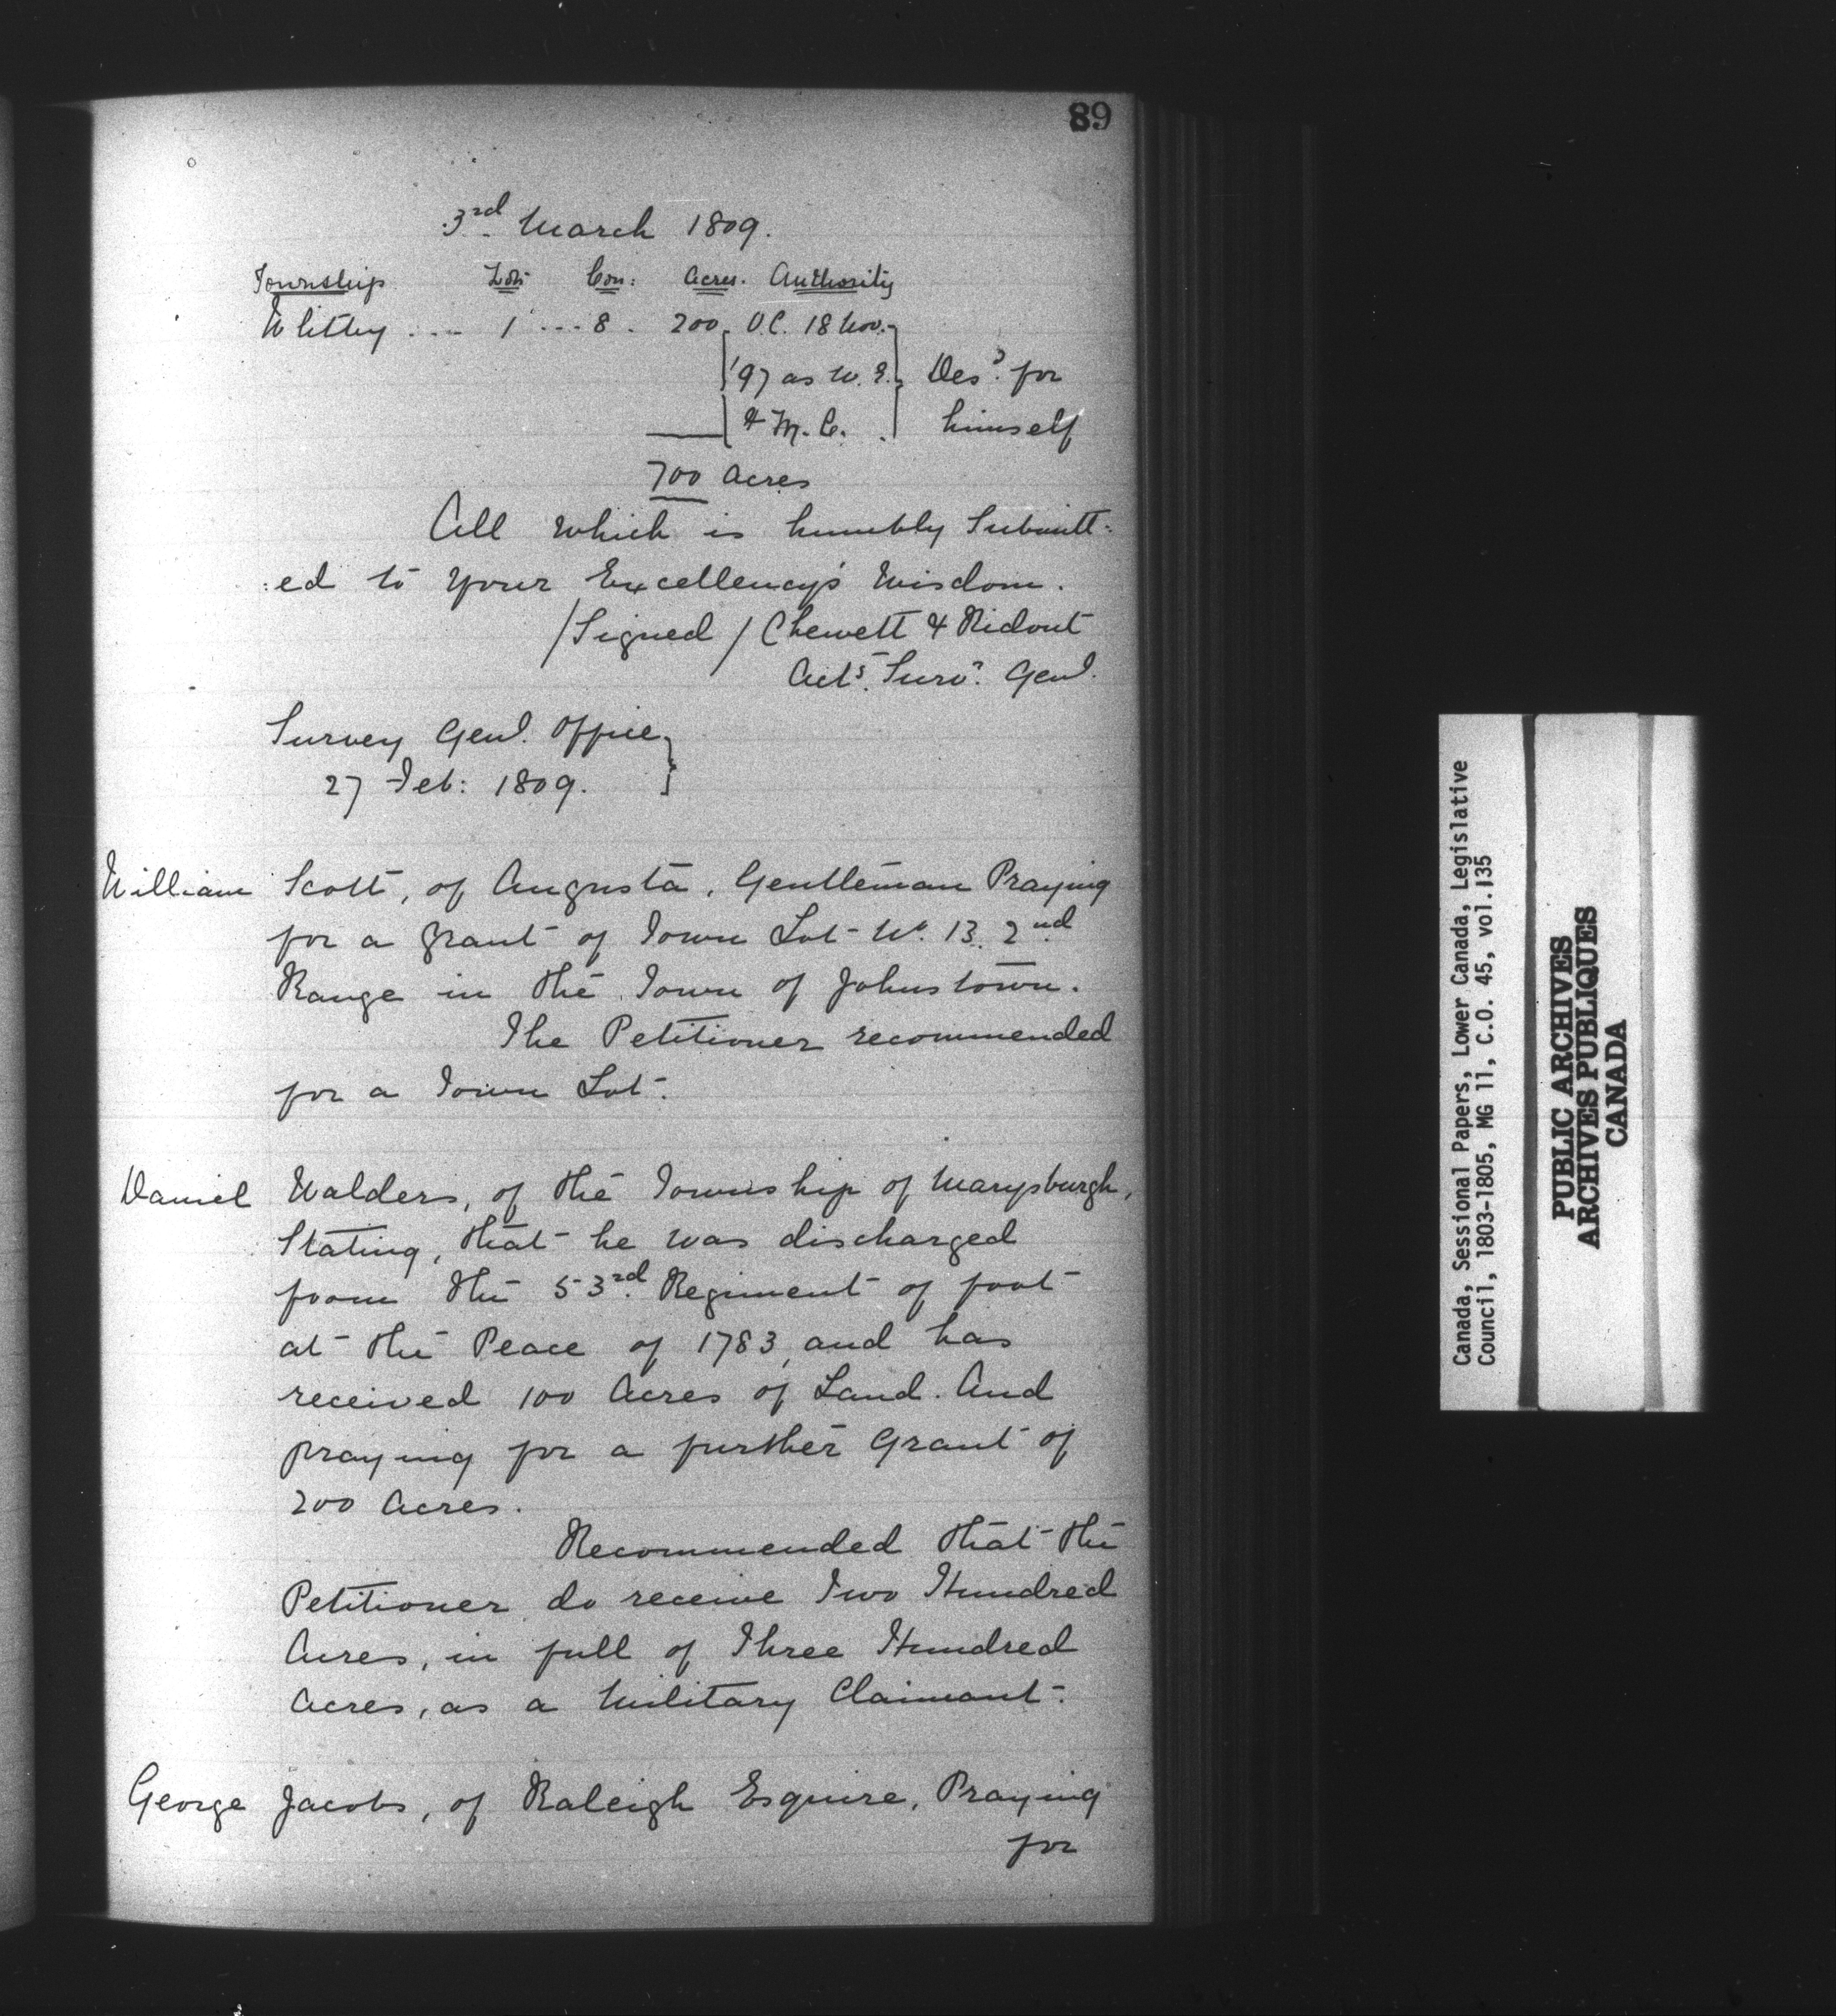 89
3rd. March 1809.
Township Lot Con: Acres. Authority
Whitby .... 1 ... 8 . 200. O.C. 18 Nov.
'97 as W.S. Des? for
& M.C. himself
700 Acres
All which is humbly Submitt:
:ed to Your Excellency's Wisdom.
/Signed/ Chewett & Ridout
Acts. Survr. Genl.
Survey Genl. Office
27 Feb: 1809.
William Scott, of Augusta, Gentleman Praying
for a Grant of Town Lot No. 13. 2nd
Range in the Town of Johnstown.
The Petitioner recommended
for a Town Lot.
Daniel Walders, of the Township of Marysburgh,
Stating, that he was discharged
from the 53rd. Regiment of foot
at the Peace of 1783, and has
received 100 Acres of Land. And
praying for a further Grant of
200 Acres.
Recommended that the
Petitioner do receive Two Hundred
Acres, in full of Three Hundred
Acres, as a Military Claimant.
George Jacobs, of Raleigh Esquire, Praying
for
Canada, Sessional Papers, Lower Canada, Legislative
Council, 1803-1805, MG 11, C.O. 45, vol.135
PUBLIC ARCHIVES
ARCHIVES PUBLIQUES
CANADA